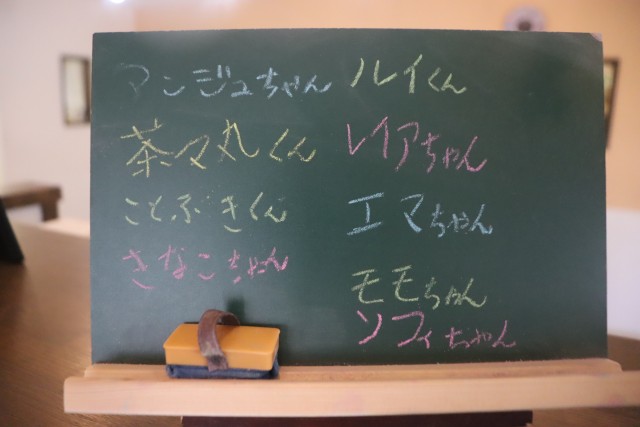 マンジュちゃん
茶々丸くん
ことぶきくん
きなこちゃん
ルイくん
レイアちゃん
エマちゃん
モモちゃん
ソフィちゃん